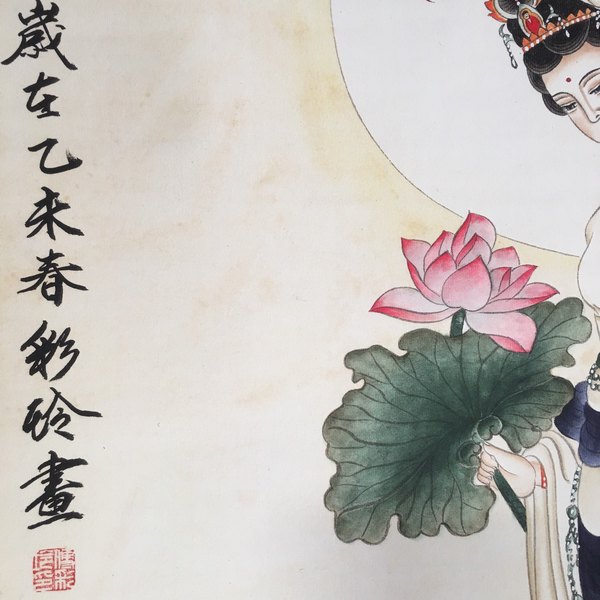 歲在乙未春彩玲畫